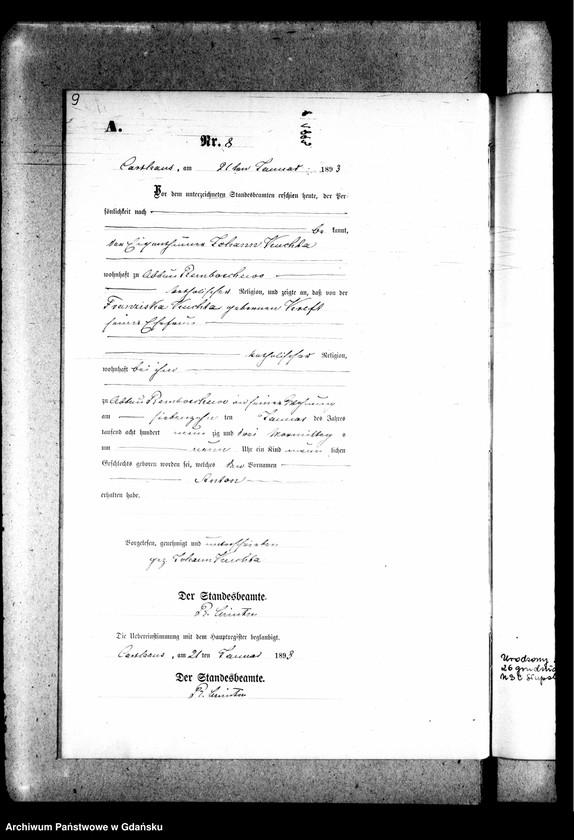 9
A.
Nr. 8
Carthaus, am 21ten Januar 1893
Vor dem unterzeichneten Standesbeamten erschien heute, der Per-
sönlichkeit nach
be kannt,
der Eigenthümer Johann Kuchta
wohnhaft zu Abbau Remboschewo
katholischer Religion, und zeigte an, daß von der
Franziska Kuchta geborenen Kreft
seiner Ehefrau
katholischer Religion,
wohnhaft bei ihm
zu Abbau Remboschewo in seiner Wohnung
am siebenzehn ten Januar des Jahres
tausend acht hundert neun zig und drei Vormittags
um neun Uhr ein Kind männ lichen
Geschlechts geboren worden sei, welches den Vornamen
Anton
erhalten habe.
Vorgelesen, genehmigt und unterschrieben
gez. Johann Kuchta
Der Standesbeamte.
Die Uebereinstimmung mit dem Hauptregister beglaubigt.
Carthaus, am 21ten Januar 1893
Der Standesbeamte.
Urodzony
26 grudnia
Archiwum Państwowe w Gdańsku